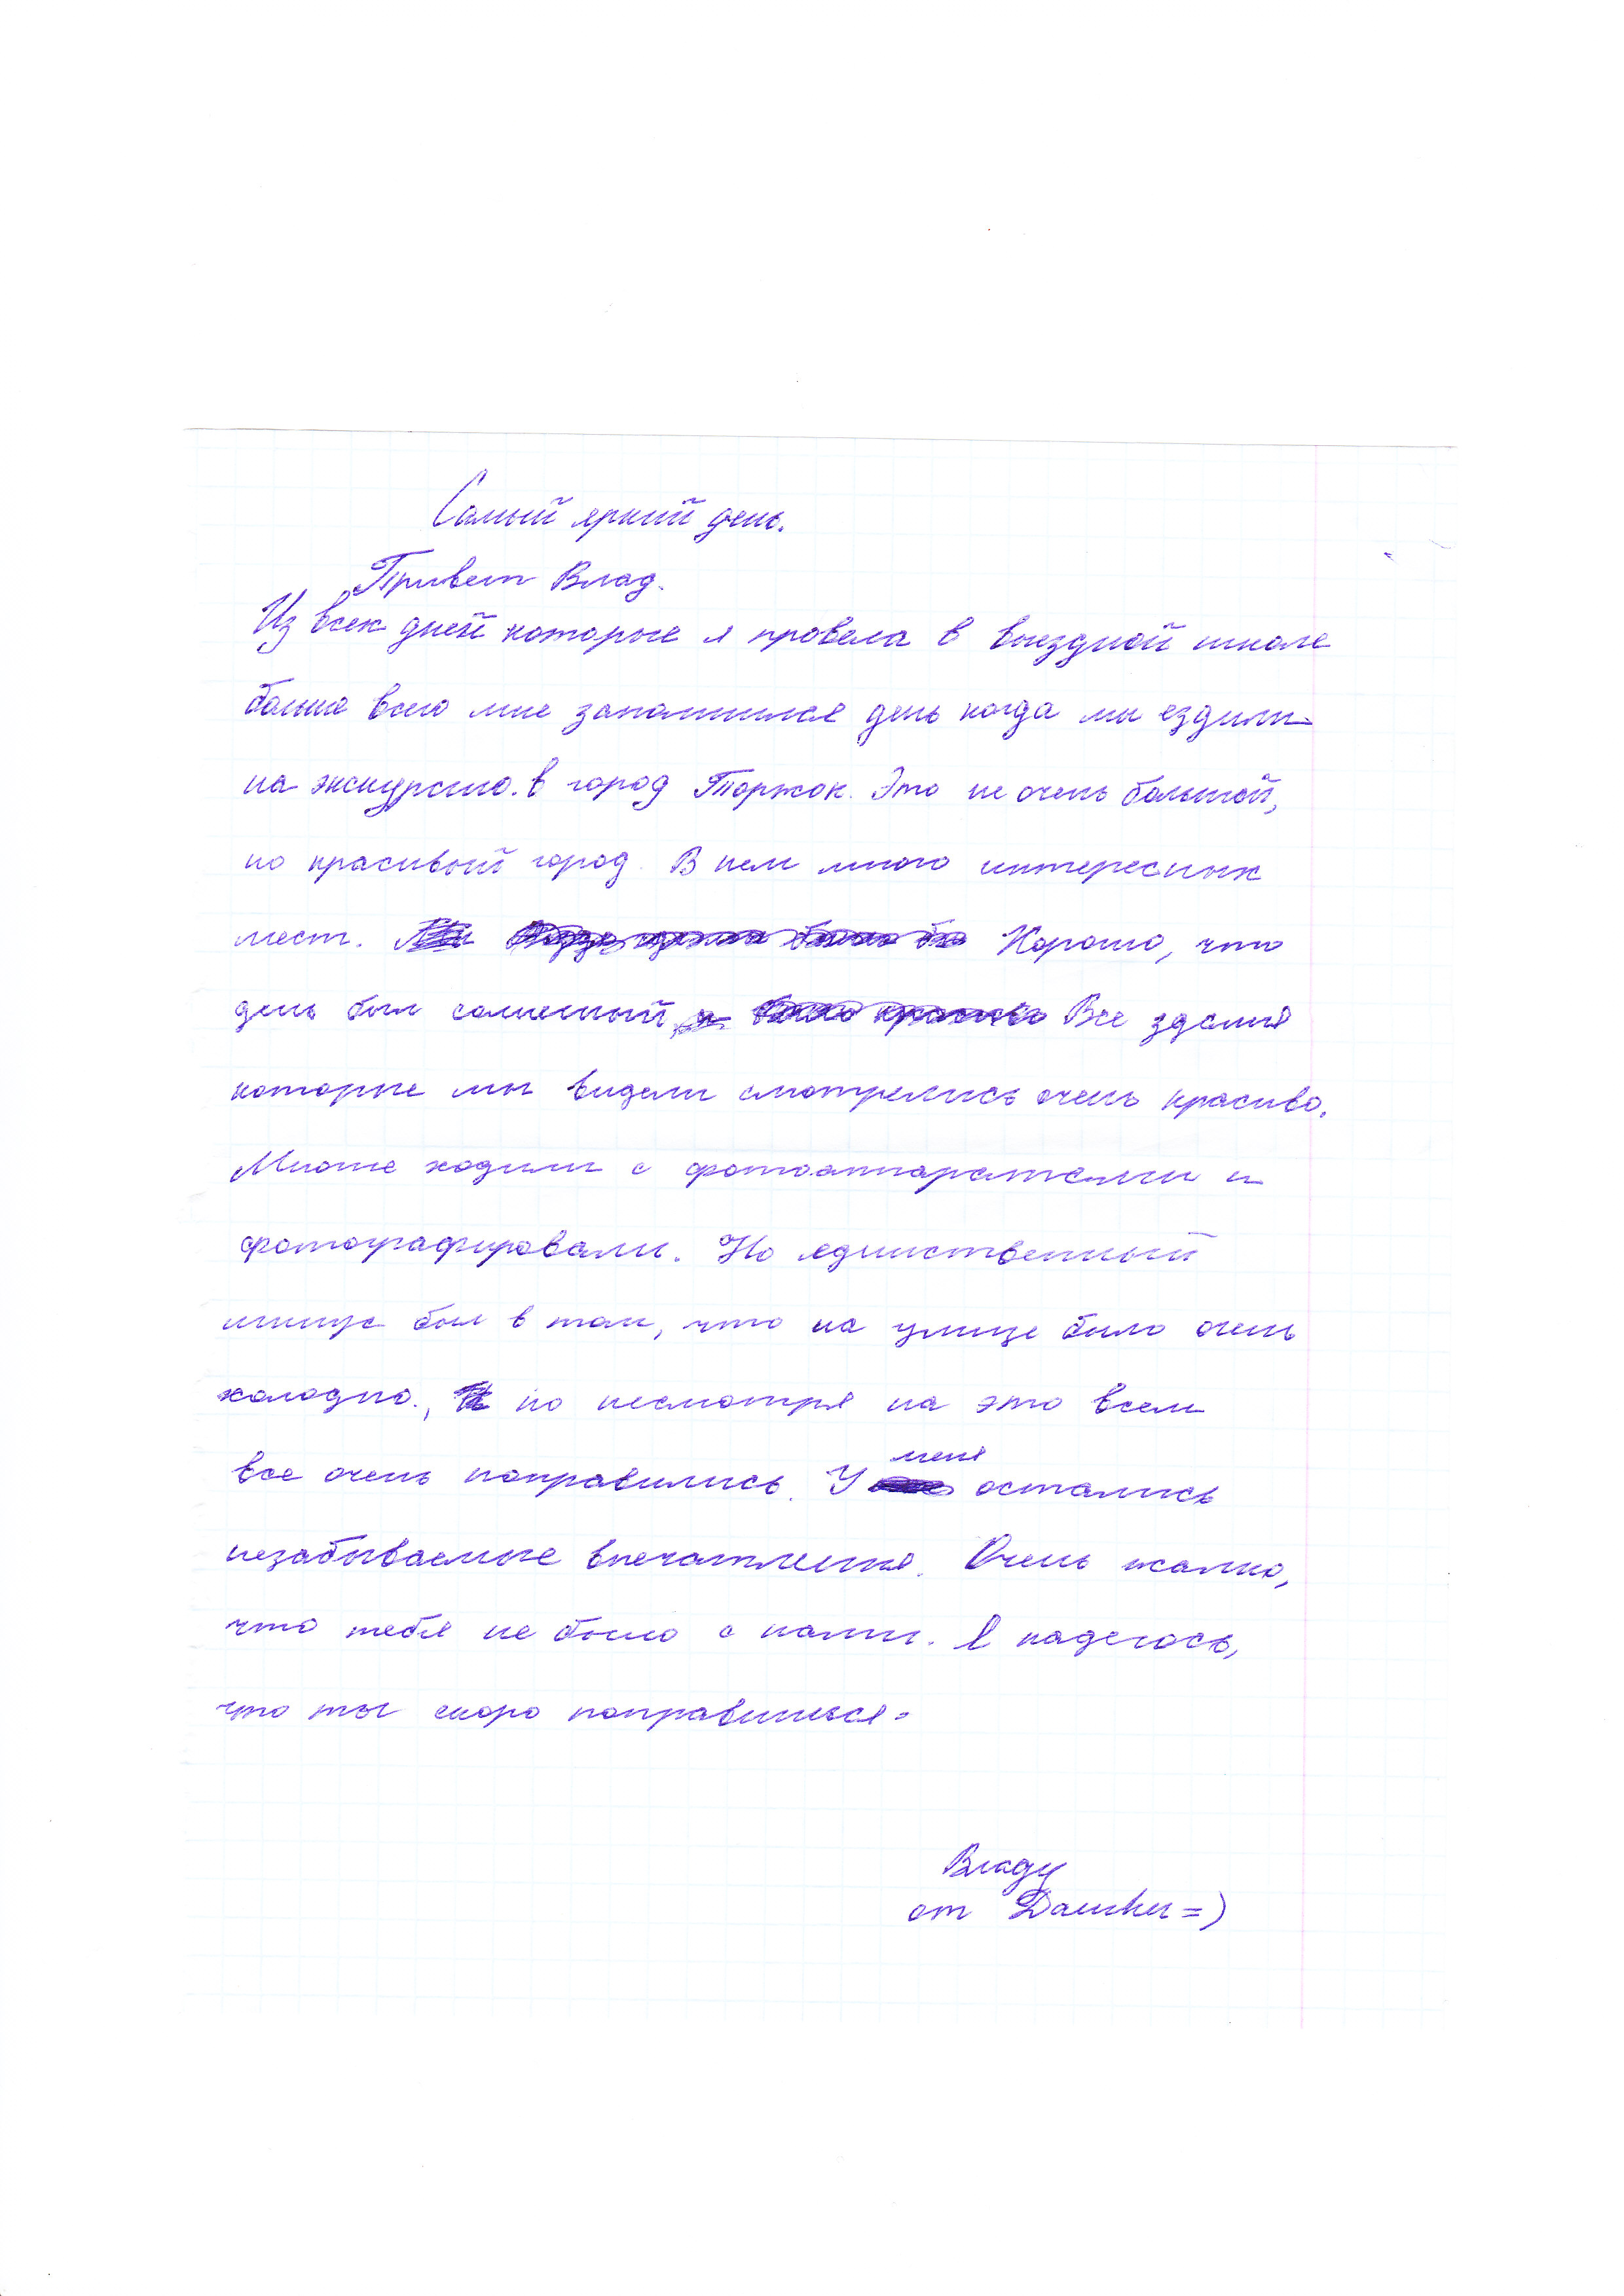 Самый яркий день.
Привет Влад.
Из всех дней которые я провела в выездной школе
больше всего мне запомнился день когда мы ездили
на экскурсию в город Торжок. Это не очень большой,
но красивый город. В нем много интересных
мест. Хорошо, что
день был солнечный Все здания
которые мы видели смотрелись очень красиво.
Многие ходили с фотоаппаратами и
фотографировали. Но единственный
минус был в том, что на улице было очень
холодно., но несмотря на это всем
все очень понравились. У меня остались
незабываемые впечатления. Очень жалко,
что тебя не было с нами. Я надеюсь,
что ты скоро поправишься.
Владу
от =)